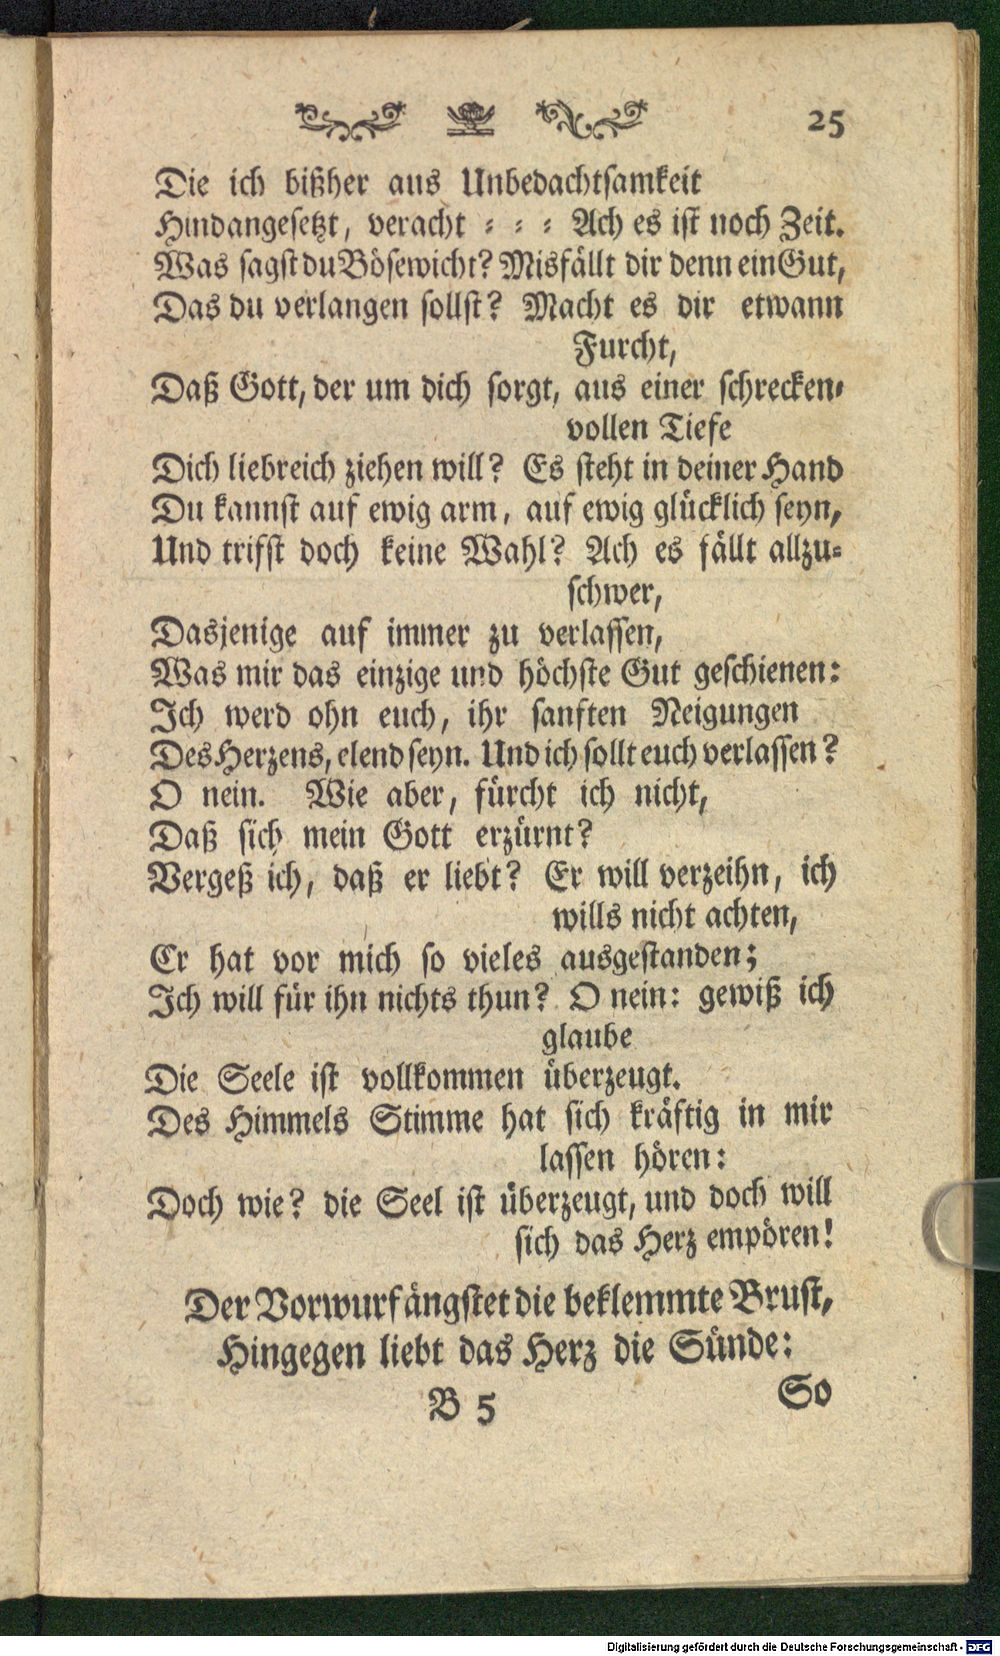 25
Die ich bißher aus Unbedachtsamkeit
Hindangesetzt, veracht = = = Ach es ist noch Zeit.
Was sagst du Bösewicht? Misfällt dir denn ein Gut,
Das du verlangen sollst? Macht es dir etwann
Furcht,
Daß Gott, der um dich sorgt, aus einer schrecken=
vollen Tiefe
Dich liebreich ziehen will? Es steht in deiner Hand
Du kannst auf ewig arm, auf ewig glücklich seyn,
Und trifst doch keine Wahl? Ach es fällt allzu=
schwer,
Dasjenige auf immer zu verlassen,
Was mir das einzige und höchste Gut geschienen:
Ich werd ohn euch, ihr sanften Neigungen
Des Herzens, elend seyn. Und ich sollt euch verlassen?
O nein. Wie aber, fürcht ich nicht,
Daß sich mein Gott erzürnt?
Vergeß ich, daß er liebt? Er will verzeihn, ich
wills nicht achten,
Er hat vor mich so vieles ausgestanden;
Ich will für ihn nichts thun? O nein: gewiß ich
glaube
Die Seele ist vollkommen überzeugt.
Des Himmels Stimme hat sich kräftig in mir
lassen hören:
Doch wie? die Seel ist überzeugt, und doch will
sich das Herz empören!
Der Vorwurf ängstet die beklemmte Brust,
Hingegen liebt das Herz die Sünde:
B 5
So
Digitalisierung gefördert durch die Deutsche Forschungsgemeinschaft - DFG